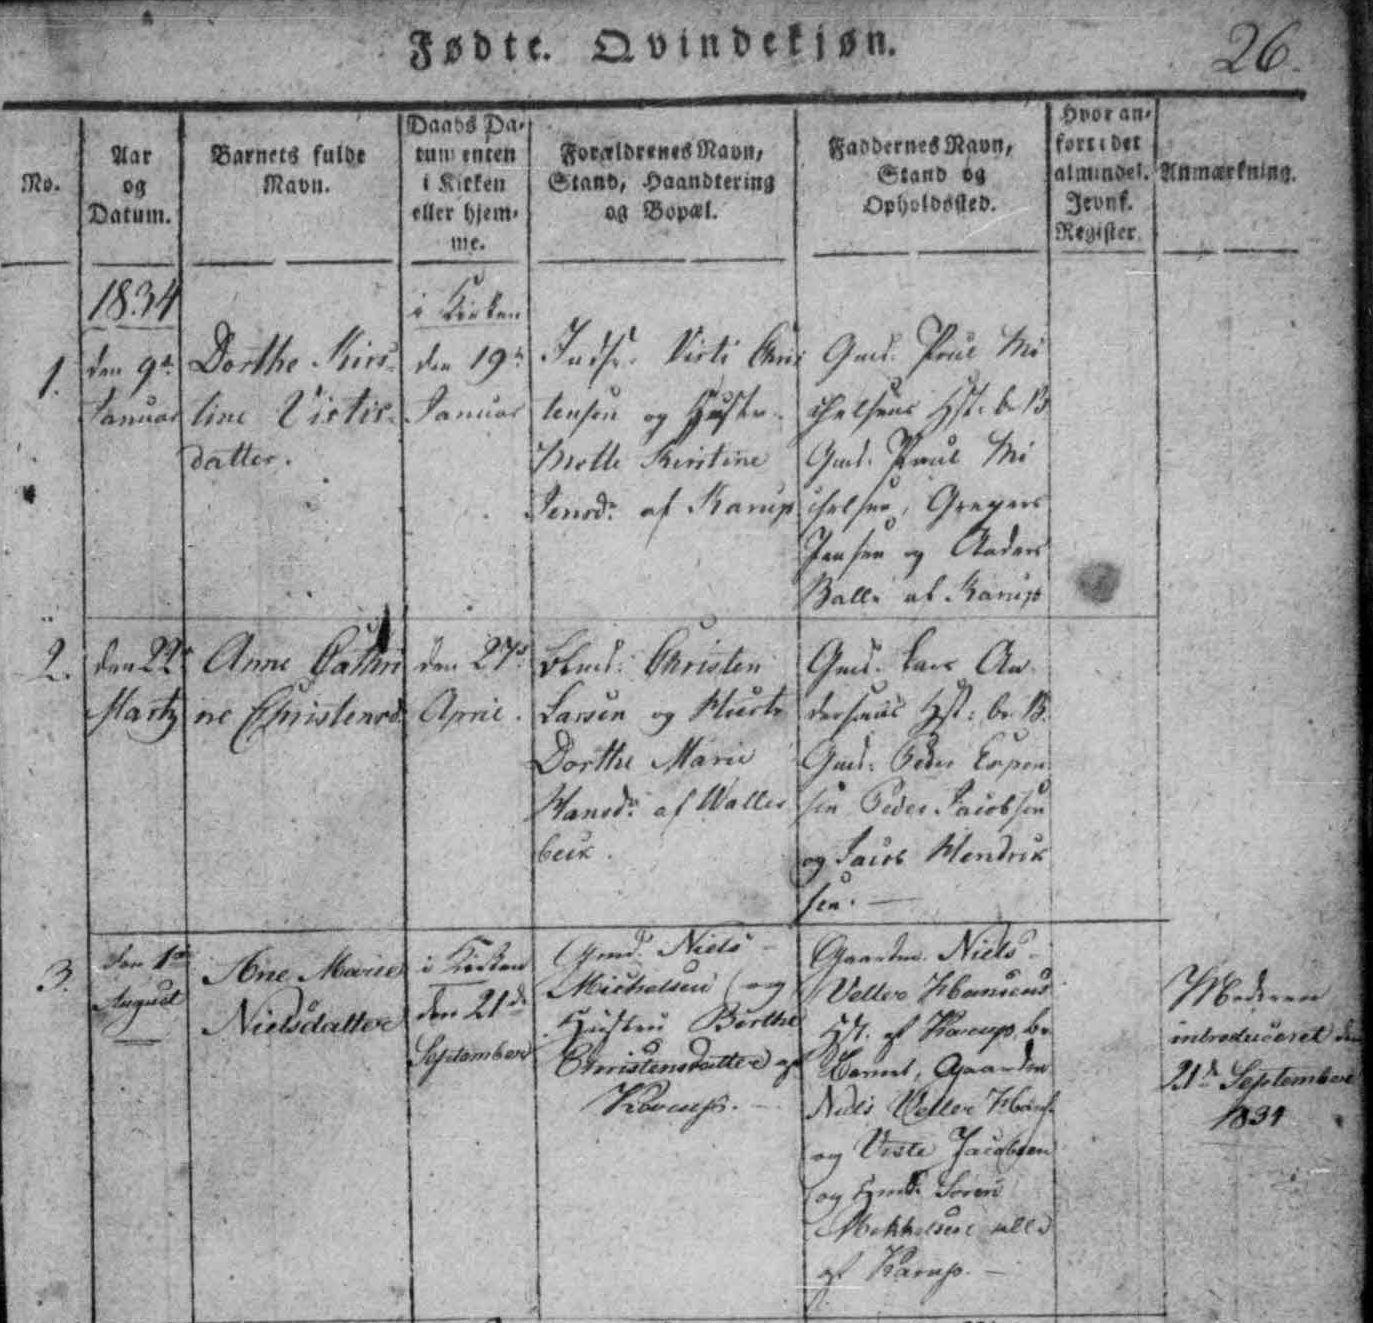 Fødte. Qvindekjøn.
26.
No.
Aar
og
Datum.
Barnets fulde
Navn.
Daabs Da-
tum enten
i Kirken
eller hjem-
me.
Forældrenes Navn,
Stand, Haandtering
og Bopæl.
Faddernes Navn,
Stand og
Opholdssted.
Hvor an-
ført i det
almindel.
Jevnf.
Register.
Anmærkning.
1834
1.
den 9de
Januar
Dorthe Kirs-
tine Vistis-
datter.
i Kirken
den 19de
Januar
Inds. Visti Chris
tensen og Hustr.
Mette Kirstine
Jensd. af Karup
Gmd. Poul Mi
chelsens Hst. b. B
Gmd. Poul Mi
chelsen, Gregers
Jensen og Anders
Balle af Karup
2.
den 22
Marty
Anne Cathri
ne Christensd.
den 27
April.
Christen
Larsen og Hustr
Dorthe Marie
Hansd. af Waller
beck.
Gmd. Lars An
dersens Hst. b. B.
Gmd. Peder Espen
sen Peder Jacobsen
og Jacob Hendrik
sen. —
3.
den 1ste
August
Ane Marie
Nielsdatter
i Kirken
den 21de
September
Gmd. Niels
Michelsen og
Hustru Birthe
Christensdatter af
Karup. —
Gaardm. Niels
Veller Hansens
Hst. af Karup, b.
Barnet, Gaardm
Niels Veller Hans.
og Viste Jacobsen
og Hmd. Søren
Mikkelsen alle
af Karup. —
Moderen
introduceret den
21de September
1834